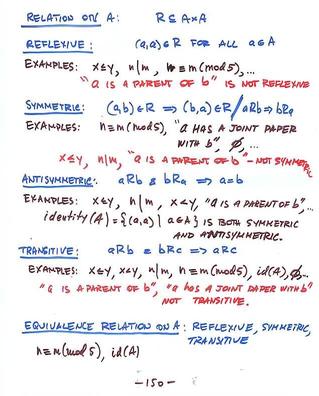 RELATION ON A: R ⊆ A×A
REFLEXIVE: (a,a)∈R FOR ALL a∈A
EXAMPLES: x≤y, n|m, n≡m(mod5),...
"a IS A PARENT OF b" IS NOT REFLEXIVE
SYMMETRIC: (a,b)∈R ⇒ (b,a)∈R / aRb ⇒ bRa
EXAMPLES: n≡m(mod5), "a HAS A JOINT PAPER
WITH b", ∅,...
x≤y, n|m, "a IS A PARENT OF b" - NOT SYMMETRIC
ANTISYMMETRIC: aRb & bRa ⇒ a=b
EXAMPLES: x≤y, n|m, x<y, "a IS A PARENT OF b",...
identity(A) = {(a,a) | a∈A} IS BOTH SYMMETRIC
AND ANTISYMMETRIC.
TRANSITIVE: aRb & bRc ⇒ aRc
EXAMPLES: x≤y, x<y, n|m, n≡m(mod5), id(A), ∅,...
"a IS A PARENT OF b", "a HAS A JOINT PAPER WITH b"
NOT TRANSITIVE.
EQUIVALENCE RELATION ON A: REFLEXIVE, SYMMETRIC,
TRANSITIVE
n≡m(mod5), id(A)
-150-